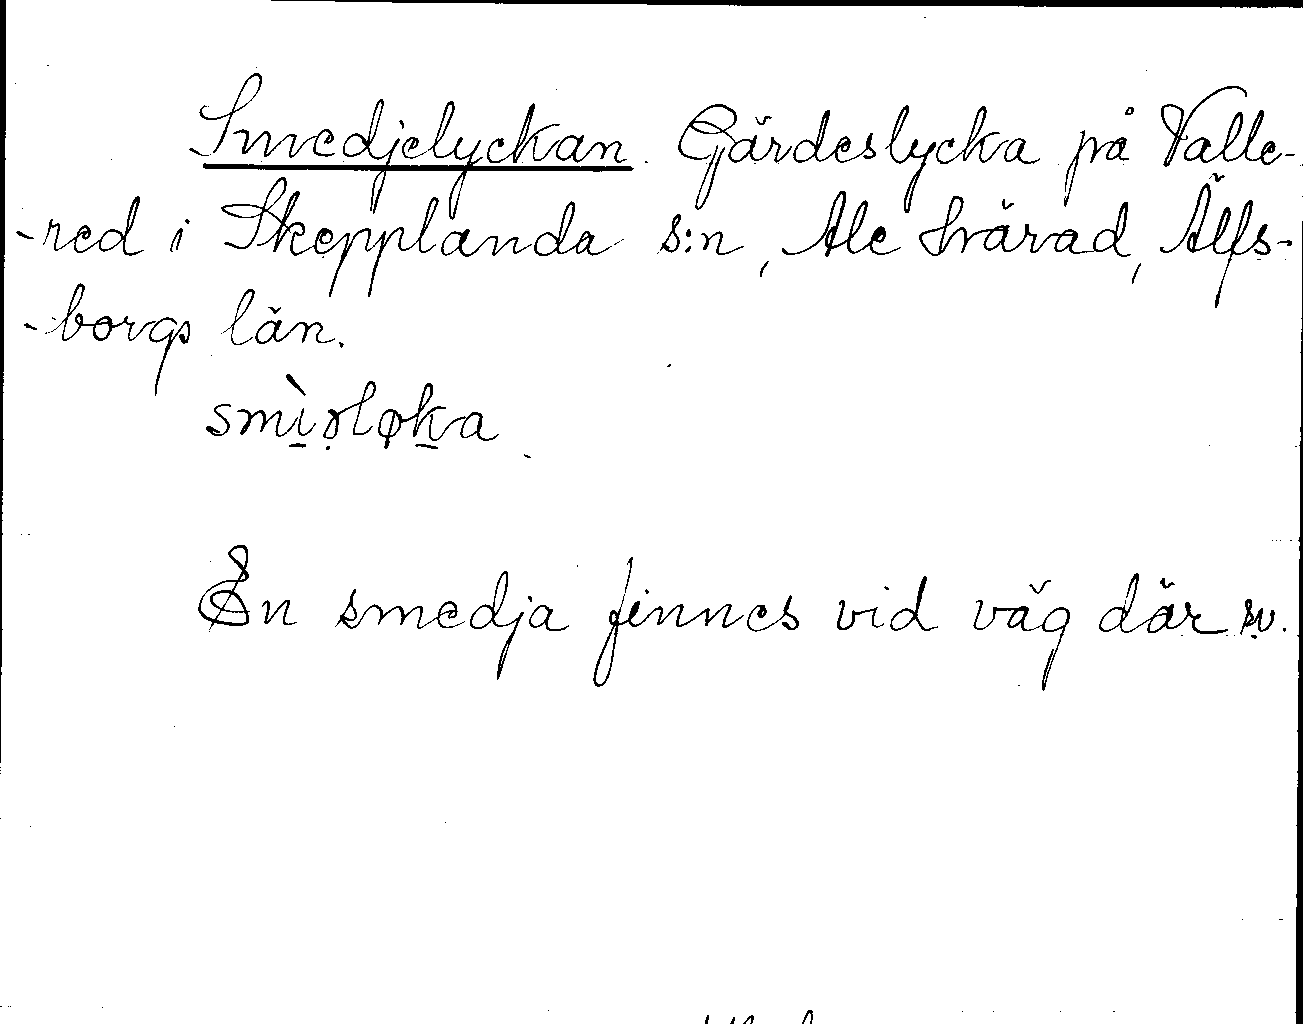 Smedjelyckan. Gärdeslycka på Valle-
-red i Skepplanda s:n, Ale härad, Älfs-
-borgs län.
smì̱ə̣lφḵa
En smedja finnes vid väg där sv.